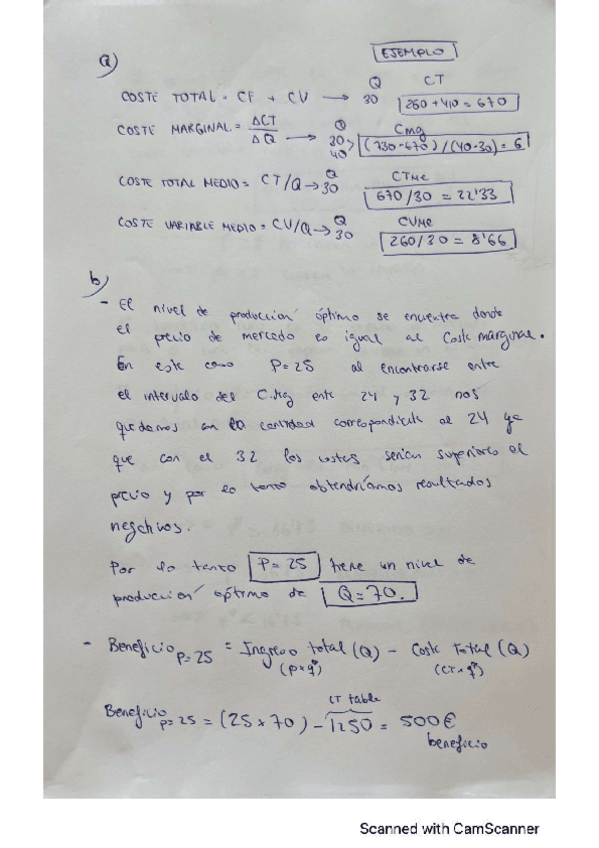 a)
EJEMPLO
COSTE TOTAL = CF + CV → Q 30 CT 260 + 410 = 670
COSTE MARGINAL = ΔCT/ΔQ → Q 30 40 > Cmg (730-670)/(40-30) = 6
COSTE TOTAL MEDIO = CT/Q → Q 30 CTMe 670/30 = 22'33
COSTE VARIABLE MEDIO = CV/Q → Q 30 CVMe 260/30 = 8'66
b)
- El nivel de producción óptimo se encuentra donde
el precio de mercado es igual al Coste marginal.
En este caso P=25 al encontrarse entre
el intervalo del C.Mg ente 24 y 32 nos
quedamos con la cantidad correspondiente al 24 ya
que con el 32 los costes serian superiores al
precio y por lo tanto obtendríamos resultados
negativos.
Por lo tanto P=25 tiene un nivel de
producción óptimo de Q=70.
- Beneficio P=25 = Ingreso total (Q) - Coste Total (Q)
(p×q*) (CT×q*)
CT table
Beneficio P=25 = (25×70) - 1250 = 500€
beneficio
Scanned with CamScanner